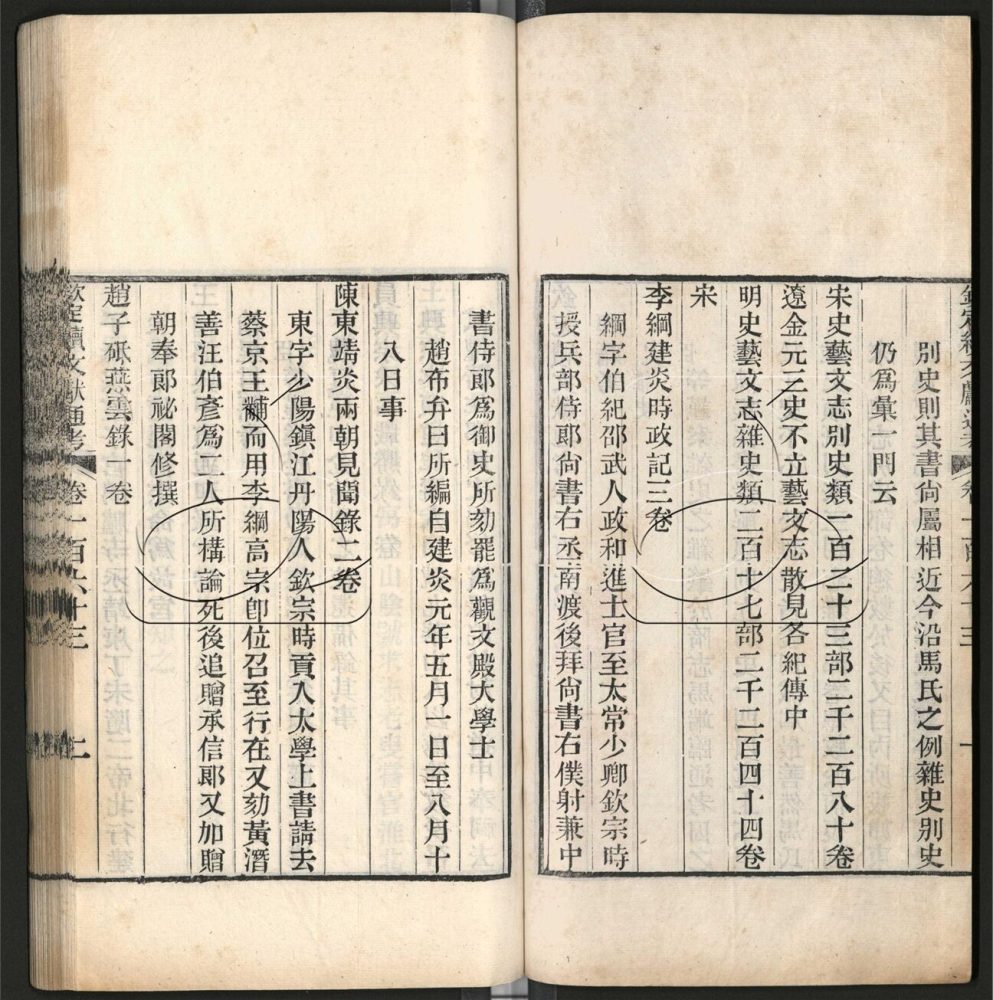 別史則其書尙屬相近今沿馬氏之例雜史別史
仍爲彙一門云
宋史藝文志別史類一百二十三部二千二百八十卷
遼金元三史不立藝文志散見各紀傳中
明史藝文志雜史類二百十七部二千二百四十四卷
宋
李綱建炎時政記三卷
綱字伯紀邵武人政和進士官至太常少卿欽宗時
授兵部侍郎尙書右丞南渡後拜尙書右僕射兼中
書侍郎爲御史所劾罷爲觀文殿大學士
趙希弁曰所編自建炎元年五月一日至八月十
八日事
陳東靖炎兩朝見聞錄二卷
東字少陽鎮江丹陽人欽宗時貢入太學上書請去
蔡京王黼而用李綱高宗卽位召至行在又劾黃潛
善汪伯彥爲二人所構論死後追贈承信郎又加贈
朝奉郎祕閣修撰
趙子砥燕雲錄一卷
欽定續文獻通考 卷一百六十三 二